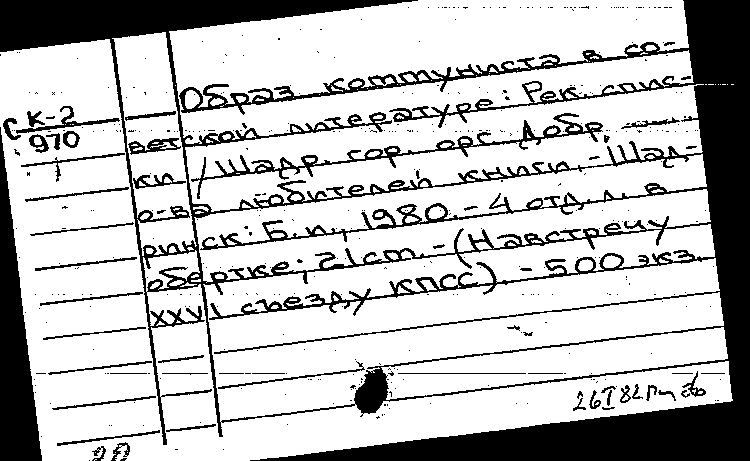 Образ коммуниста в со-
С К-2
970
ветской литературе: Рек. спис-
ки / Шадр. гор. орг. Добр.
о-ва любителей книги. - Шад-
ринск: Б.и., 1980. - 4 отд. л. в
обертке; 21 cm. - (Навстречу
XXVI съезду КПСС). - 500 экз.
26 I 82